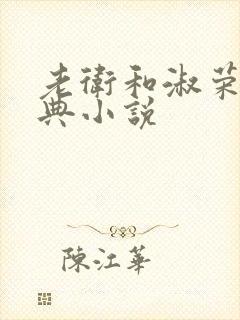 老衛和淑荣
典小説
陳江華